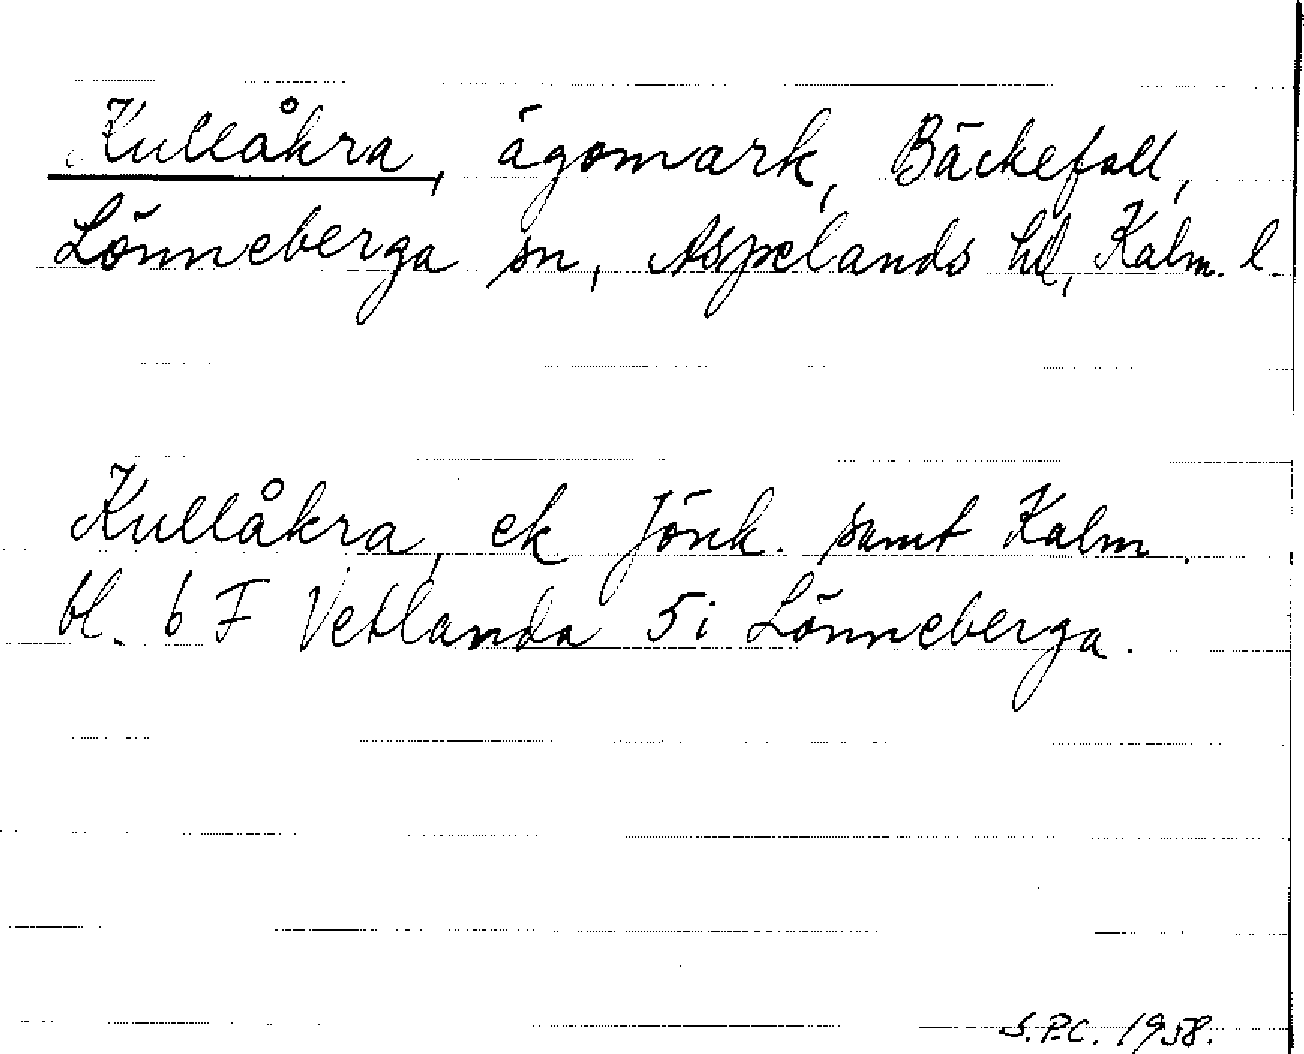 Kullåkra, ägomark, Bäckefall,
Lönneberga sn, Aspelands hd, Kalm. l.
Kullåkra, ek Jönk. samt Kalm.
bl. 6 F Vetlanda 5i Lönneberga.
S.P.C. 1958.